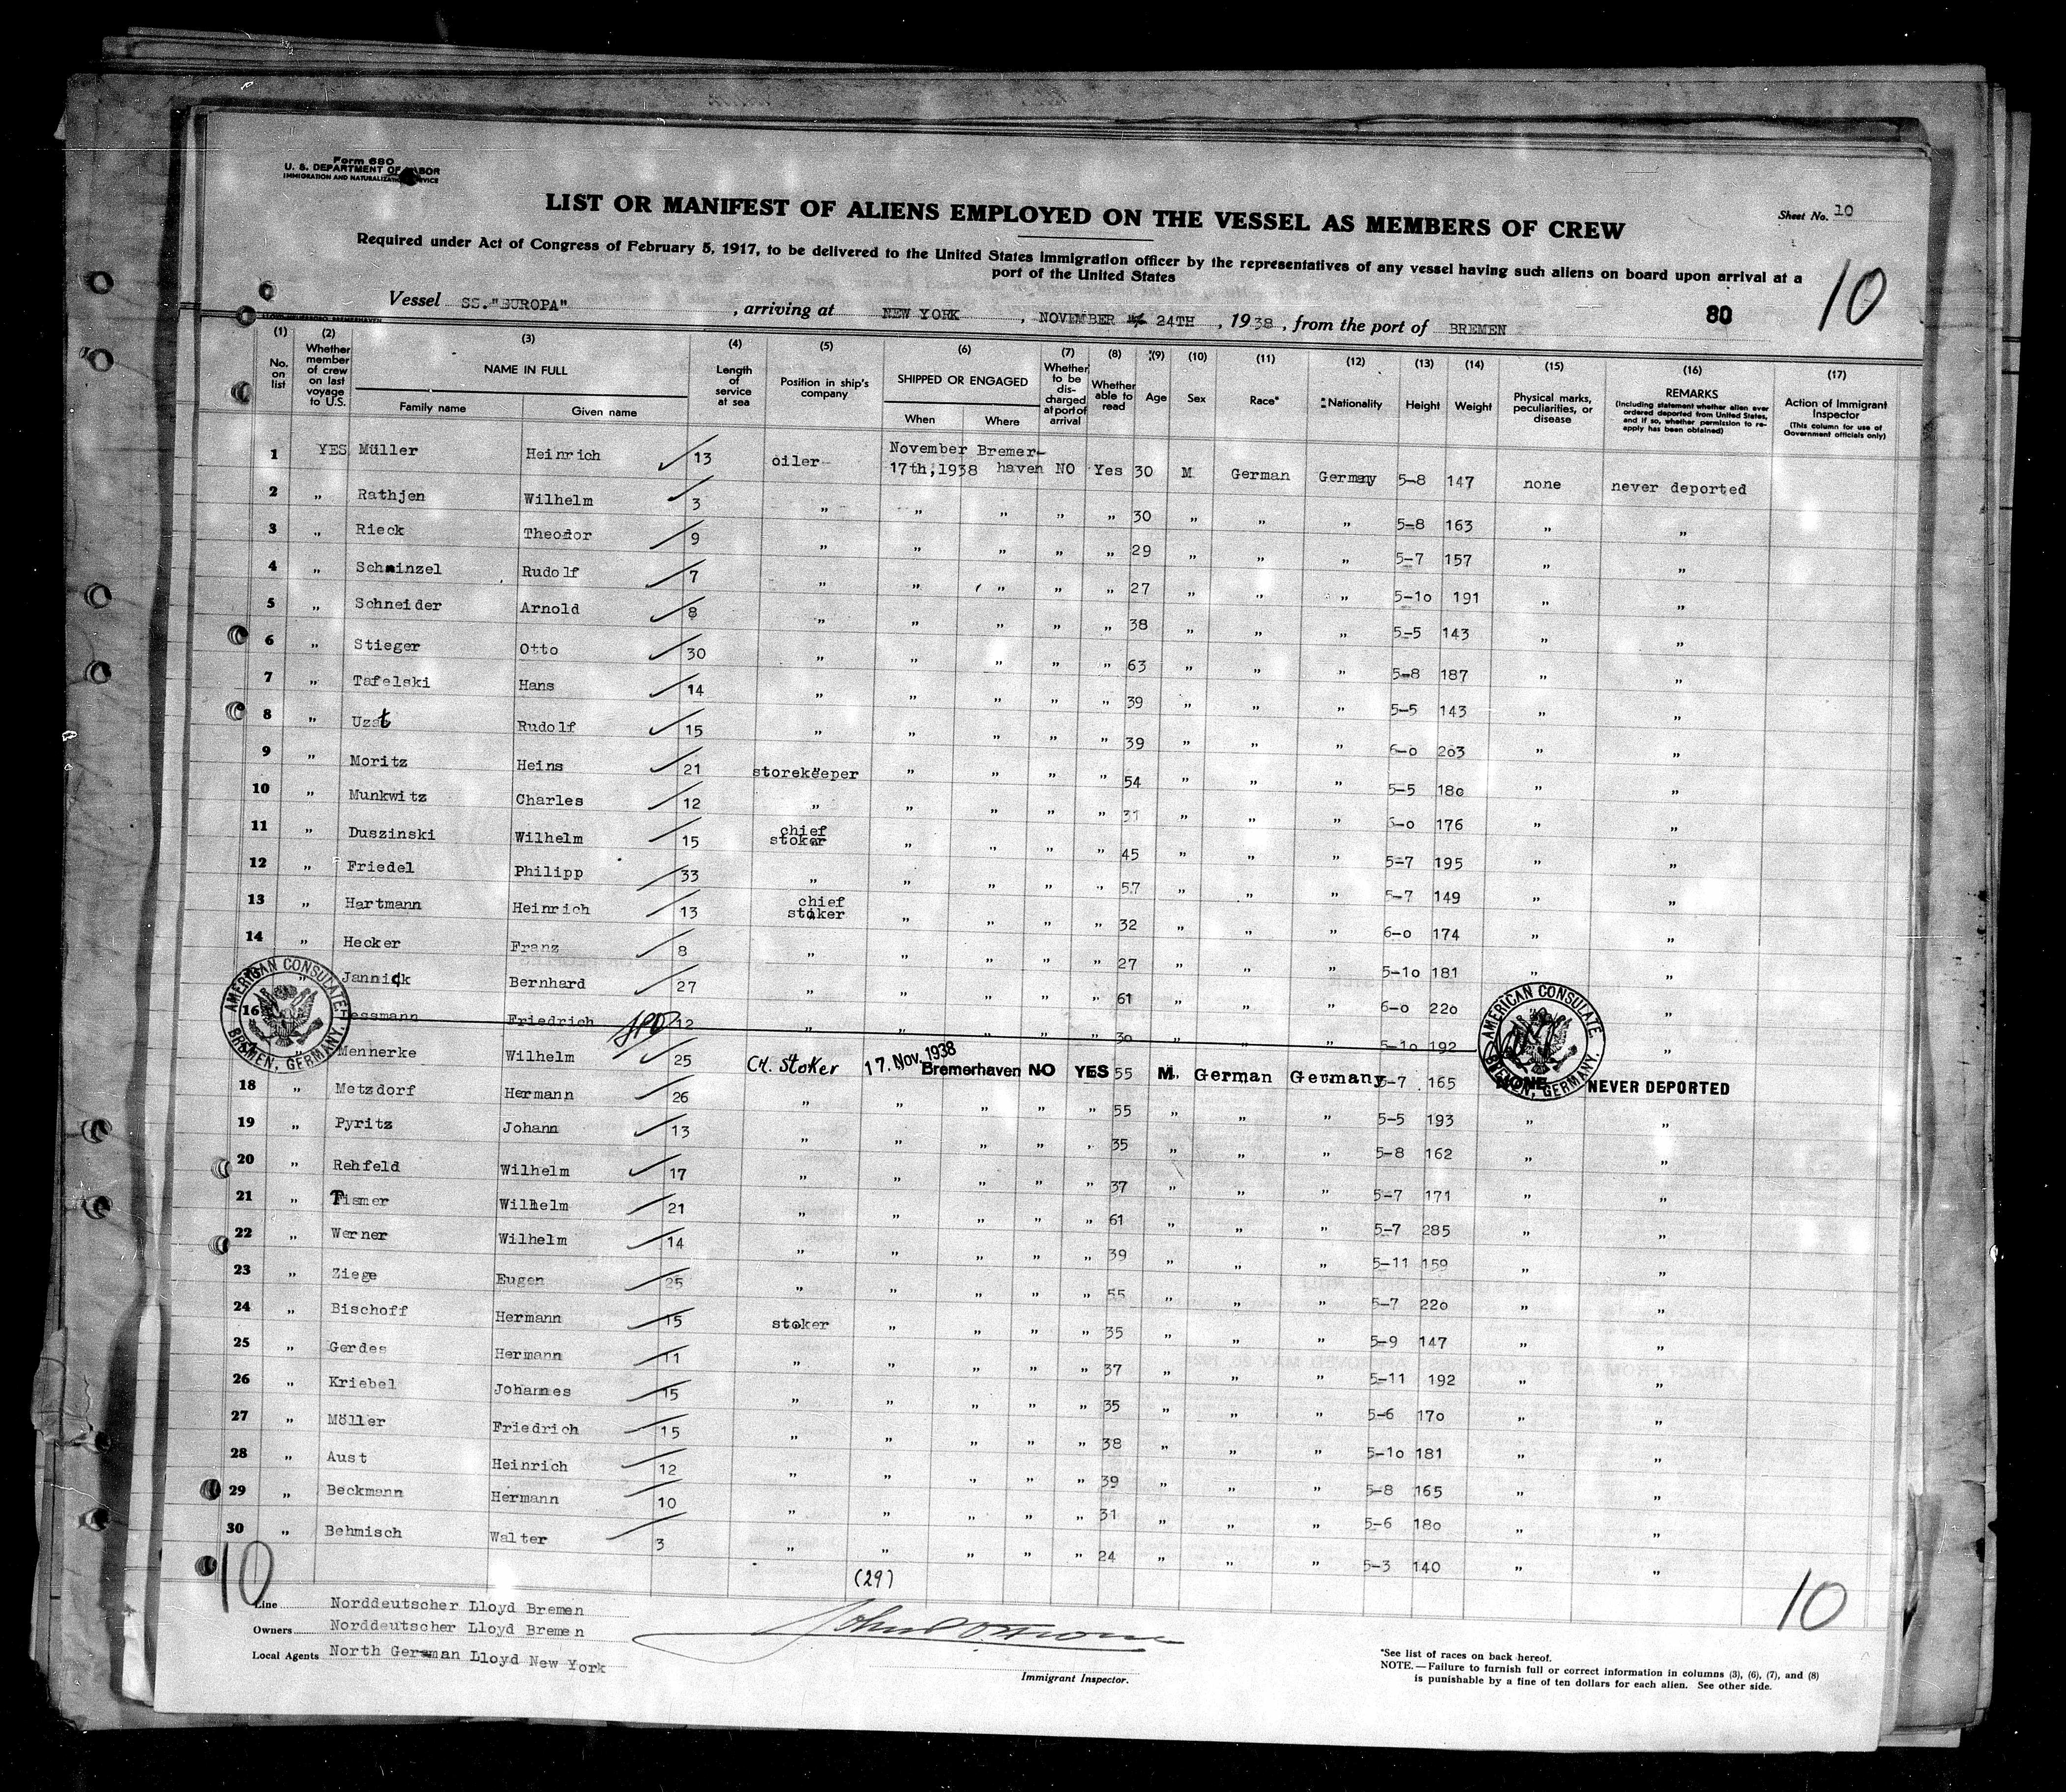 Form 680
U. S. DEPARTMENT OF LABOR
IMMIGRATION AND NATURALIZATION SERVICE
LIST OR MANIFEST OF ALIENS EMPLOYED ON THE VESSEL AS MEMBERS OF CREW
Sheet No. 10
Required under Act of Congress of February 5, 1917, to be delivered to the United States immigration officer by the representatives of any vessel having such aliens on board upon arrival at a
port of the United States
10
Vessel SS. "EUROPA" , arriving at NEW YORK , NOVEMBER 24TH , 1938 , from the port of BREMEN
80
(1) No. on list
(2) Whether member of crew on last voyage to U.S.
(3) NAME IN FULL
Family name Given name
(4) Length of service at sea
(5) Position in ship's company
(6) SHIPPED OR ENGAGED
When Where
(7) Whether to be discharged at port of arrival
(8) Whether able to read
(9) Age
(10) Sex
(11) Race*
(12) Nationality
(13) Height
(14) Weight
(15) Physical marks, peculiarities, or disease
(16) REMARKS
(Including statement whether alien ever ordered deported from United States, and if so, whether permission to reapply has been obtained)
(17) Action of Immigrant Inspector
(This column for use of Government officials only)
1 YES Müller Heinrich 13 oiler November 17th,1938 Bremerhaven NO Yes 30 M German Germany 5-8 147 none never deported
2 " Rathjen Wilhelm 3 " " " " " 30 " " " 5-8 163 " "
3 " Rieck Theodor 9 " " " " " 29 " " " 5-7 157 " "
4 " Schminzel Rudolf 7 " " " " " 27 " " " 5-10 191 " "
5 " Schneider Arnold 8 " " " " " 38 " " " 5-5 143 " "
6 " Stieger Otto 30 " " " " " 63 " " " 5-8 187 " "
7 " Tafelski Hans 14 " " " " " 39 " " " 5-5 143 " "
8 " Uzat Rudolf 15 " " " " " 39 " " " 6-0 203 " "
9 " Moritz Heins 21 storekeeper " " " " 54 " " " 5-5 180 " "
10 " Munkwitz Charles 12 " " " " " 31 " " " 6-0 176 " "
11 " Duszinski Wilhelm 15 chief stoker " " " " 45 " " " 5-7 195 " "
12 " Friedel Philipp 33 " " " " " 57 " " " 5-7 149 " "
13 " Hartmann Heinrich 13 chief stoker " " " " 32 " " " 6-0 174 " "
14 " Hecker Franz 8 " " " " " 27 " " " 5-10 181 " "
" Jannick Bernhard 27 " " " " " 61 " " " 6-0 220 "
16 essmann Friedrich 12 " " " " " 30 " " " 5-10 192 "
" Mennerke Wilhelm 25 Ch. Stoker 17. Nov. 1938 Bremerhaven NO YES 55 M. German Germany 5-7 165 NONE NEVER DEPORTED
AMERICAN CONSULATE BREMEN, GERMANY.
AMERICAN CONSULATE. BREMEN, GERMANY.
18 " Metzdorf Hermann 26 " " " " " 55 " " " 5-5 193 " "
19 " Pyritz Johann 13 " " " " " 35 " " " 5-8 162 " "
20 " Rehfeld Wilhelm 17 " " " " " 37 " " " 5-7 171 " "
21 " Tismer Wilhelm 21 " " " " " 61 " " " 5-7 285 " "
22 " Werner Wilhelm 14 " " " " " 39 " " " 5-11 159 " "
23 " Ziege Eugen 25 " " " " " 55 " " " 5-7 220 " "
24 " Bischoff Hermann 15 stoker " " " " 35 " " " 5-9 147 " "
25 " Gerdes Hermann 11 " " " " " 37 " " " 5-11 192 " "
26 " Kriebel Johannes 15 " " " " " 35 " " " 5-6 170 " "
27 " Möller Friedrich 15 " " " " " 38 " " " 5-10 181 " "
28 " Aust Heinrich 12 " " " " " 39 " " " 5-8 165 " "
29 " Beckmann Hermann 10 " " " " " 31 " " " 5-6 180 " "
30 " Behmisch Walter 3 " " " " " 24 " " " 5-3 140 " "
(29)
10
10
Line Norddeutscher Lloyd Bremen
Owners Norddeutscher Lloyd Bremen
Local Agents North German Lloyd New York
Immigrant Inspector.
*See list of races on back hereof.
NOTE.—Failure to furnish full or correct information in columns (3), (6), (7), and (8)
is punishable by a fine of ten dollars for each alien. See other side.